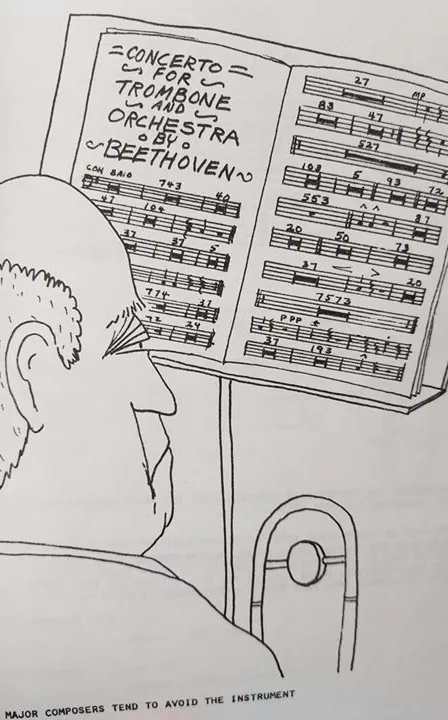 CONCERTO
FOR
TROMBONE
AND
ORCHESTRA
BY
BEETHOVEN
CON BRIO
743 40
47 104
37 37 5
774 37
72 24
27 MP
83 47
527
108 5 93 72
553 87
20 50 73
37 20
7573
PPP
37 193
MAJOR COMPOSERS TEND TO AVOID THE INSTRUMENT